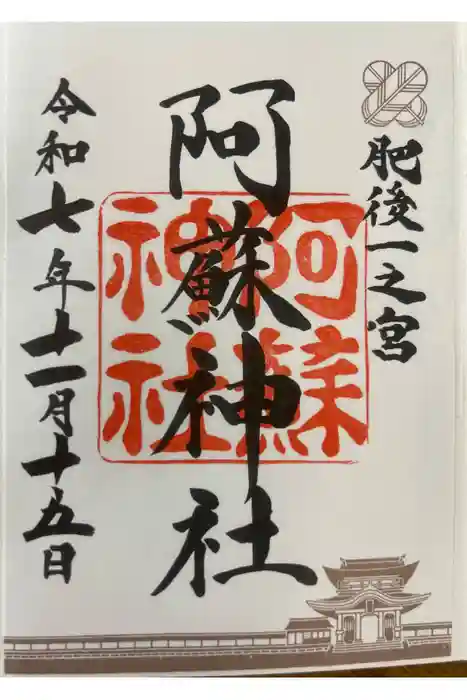 肥後一之宮
阿蘇神社
阿蘇
神社
令和七年十一月十五日